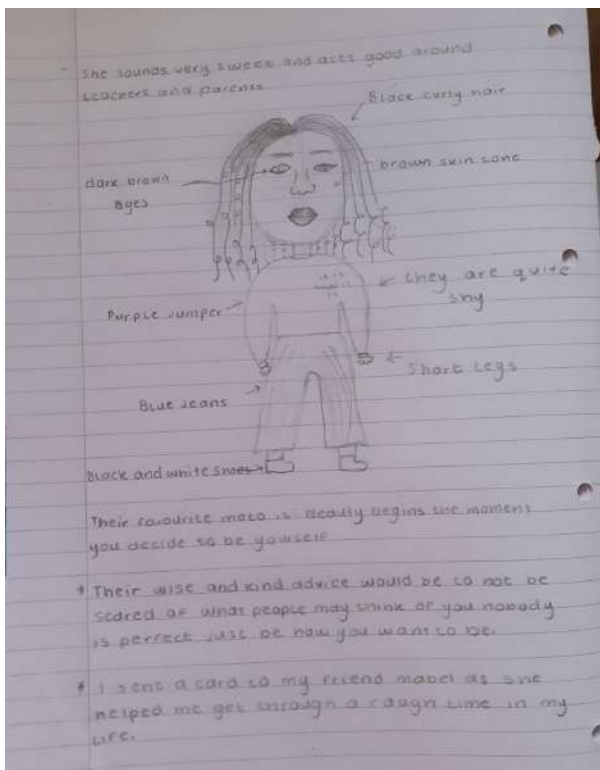 - She sounds very sweet and acts good around
teachers and parents
Black curly hair
dark brown
eyes
brown skin tone
they are quite
shy
Purple Jumper
Short Legs
Blue Jeans
Black and white shoes
Their favourite moto is Beauty begins the moment
you decide to be yourself
* Their wise and kind advice would be to not be
scared of what people may think of you nobody
is perfect just be how you want to be.
* I sent a card to my friend mabel as she
helped me get through a rough time in my
life.